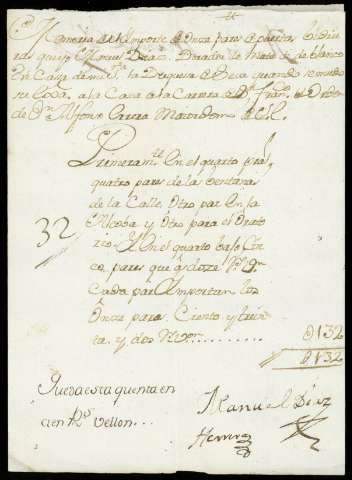 Memoria del Importe de Onze pares de puertas bidrie
ras que yo Manuel Diaz Dorador he dado de blanco
en Casa de mi s.ra la Duquesa de Bexar quando se mudo
su Exa. a la Casa de la Carrera de Sn. Fran.co de Orden
de Dn. Alfonso Correa Maiordomo de S.E.
Primeram.te En el quarto pral.
quatro pares de las bentanas
de la Calle Otro par En la
Alcoba y Otro para el Orato
rio. Y En el quarto bajo Cin
co pares que a doze Rs. Vn.
Cada par Importan los
Onze pares Ciento y trein
ta y dos Rs. Vn. ........ 0132
32
0132
Queda esta quenta en
cien Rs. Vellon...
Manuel Diaz
Herrera